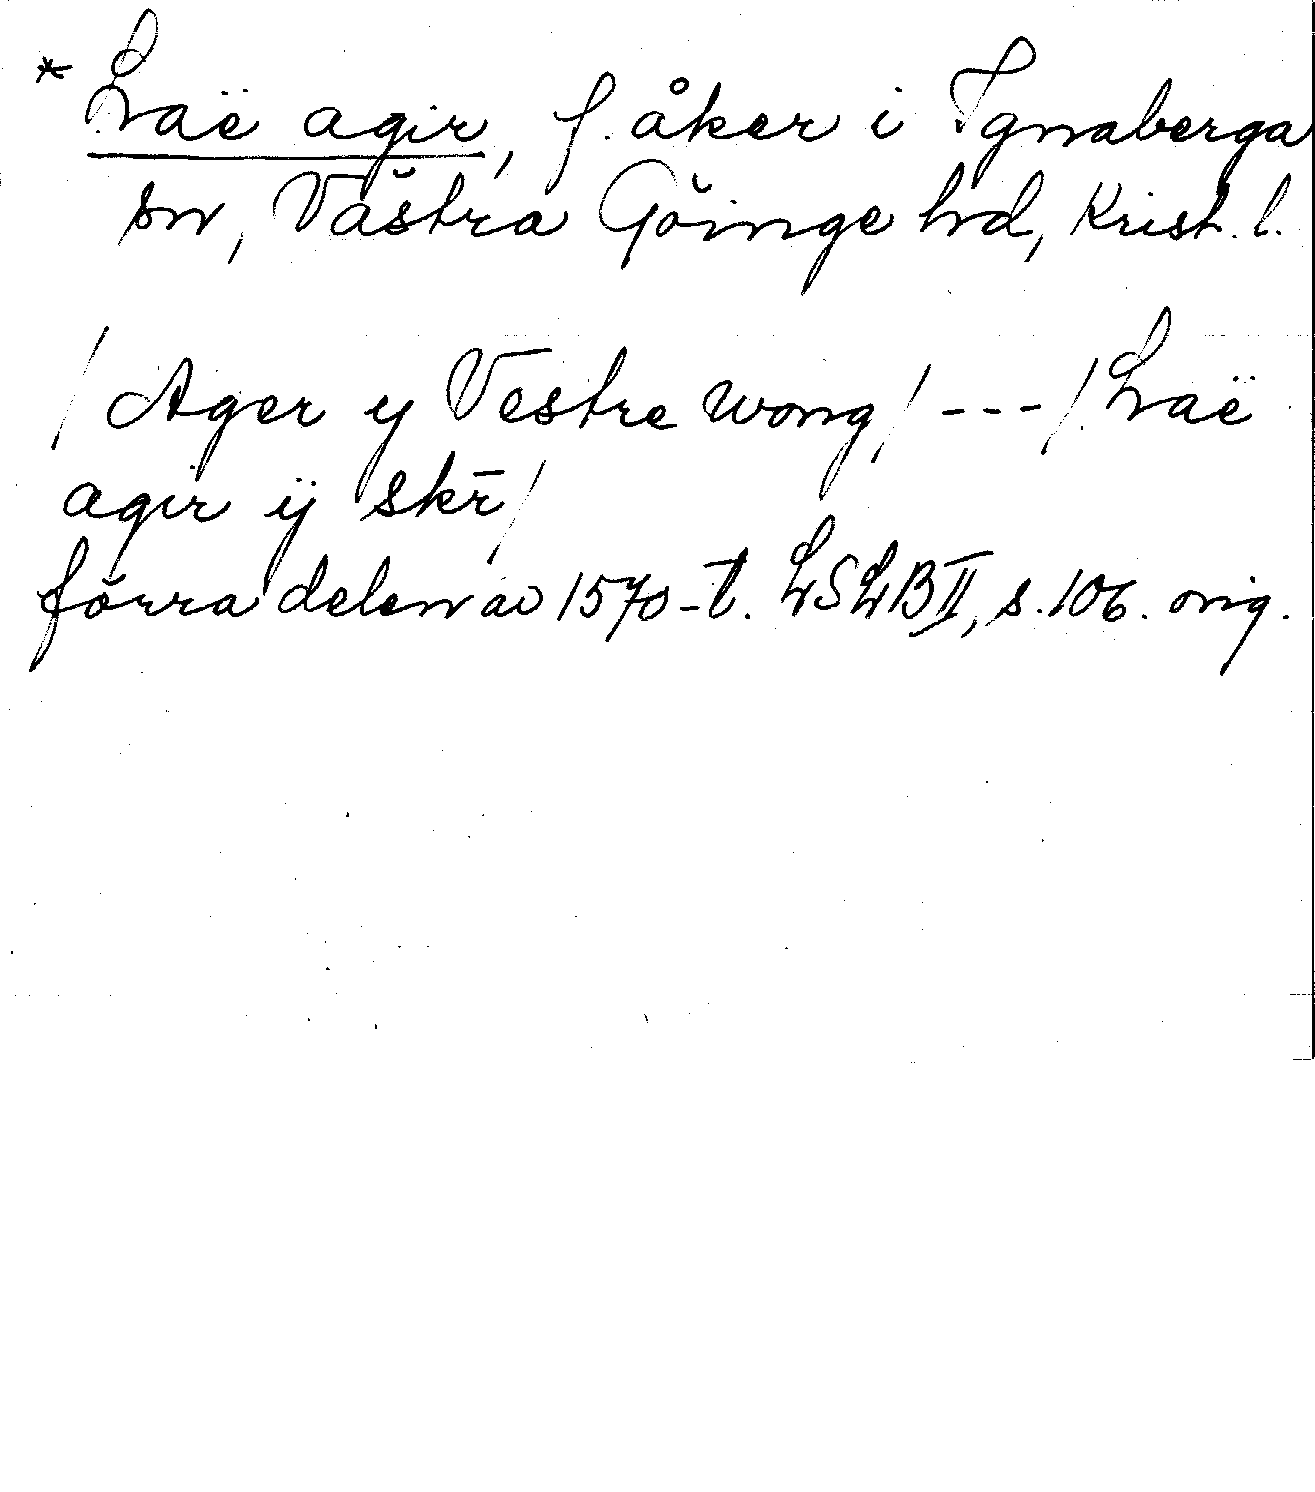 * Laë agir, f. åker i Ignaberga
sn, Västra Göinge hd, Krist. l.
/Ager y Vestre wong,/---/Laë
agir ÿ skr̄/
förra delen av 1570-t. LSLB II, s. 106. orig.